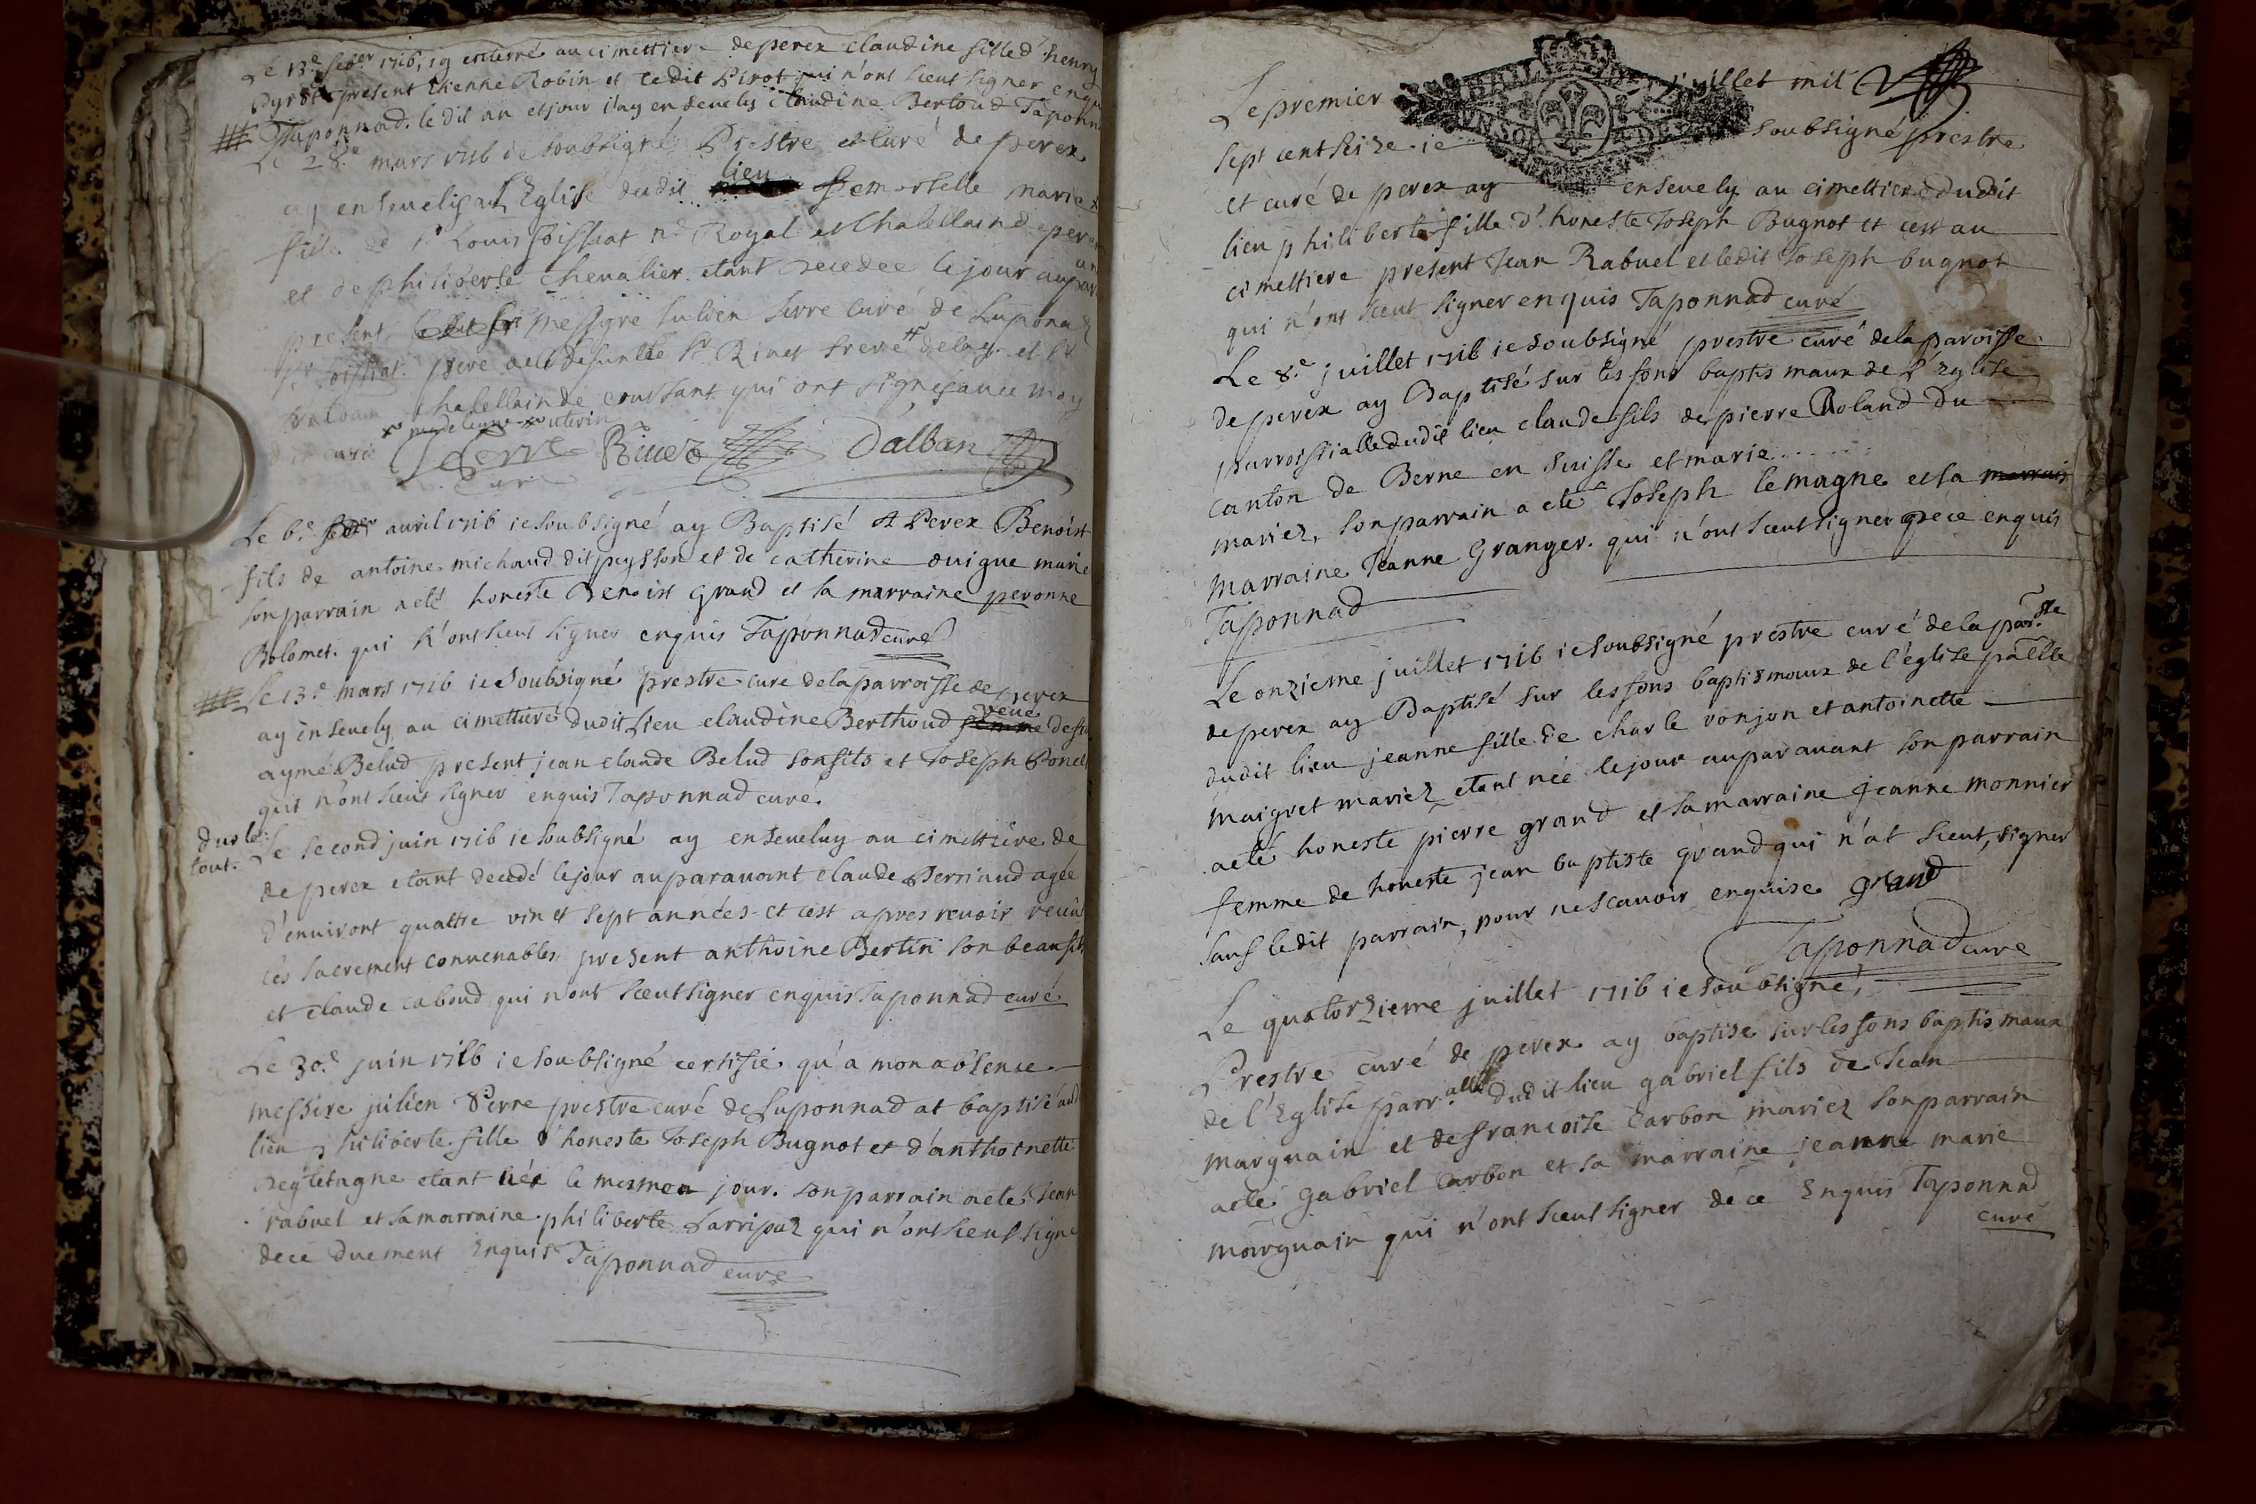 Le 13e feber 1716, ig enterré au cimettiere de perex claudine fille d'henry
Pyrot present Etienne Robin et ledit Pirot qui n'ont sceut signer enqu
Taponnad. le dit an et jour i'ay enseuely claudine Bertoud Taponn
Le 28e mars 1716 ie soubsigné Prestre et curé de perex
ay enseueli en L'Eglise dudit lieu Demorselle marie x
fille de sr Louis soissiat nre Royal et Chatellain de perex
et de philiberte chevalier etant decedee le jour aupar auan
present Messyre Julien Serre curé de Luponnaz
sr soissiat père de la defuntte sr Riuet frere # de lay et sr
chatellain de coussant qui ont signes auec moy
x madeleine # uterin
dit curé Serre Riuet Dalban
Curé
Le 6e aavril 1716 ie soubsigné ay Baptisé A Perex Benoist
fils de antoine michaud dit peysson et de catherine ouigue marie
son parrain a eté honeste Benoist grand et sa marraine peronne
Bolomet. qui n'ont sceut signer enquis Taponnad curé
Le 13e mars 1716 ie soubsigné prestre curé de la parroisse de perex
ay enseuely au cimettiere dudit Lieu claudine Berthoud femme veue defu
aymé Belud present jean claude Belud son fils et Joseph Poncet
qui n'ont sceut signer enquis Taponnad curé.
dus le tout. Le second juin 1716 ie soubsigné ay enseueluy au cimettiere de
de perex etant decedé le jour auparauant claude Perriaud agée
d'enuiront quattre vin et sept années et cest apres reuoir receu
ces sacrement conuenables present anthoine Bertin son beau fils
et claude caboud qui n'ont sceut signer enquis Taponnad curé
Le 30e juin 1716 ie soubsigné certifie qu'a mon absence
messire julien Serre prestre curé de Luponnad at baptisé audi
lieu philiberte fille d'honeste Joseph Bugnot et d'anthoinette
Bregletagne etant née le mesmea jour. son parrain a eté Jean
rabuel et sa marraine philiberte Larripaz qui n'ont sceut signe
dece duement Enquis Taponnad curé
Le premier juillet mil
sept cent seize ie soubsigné prestre
et curé de perex ay enseuely au cimettiere dudit
lieu philiberte fille d'honeste Joseph Bugnot et cest au
cimettiere present Jean Rabuel et ledit Joseph bugnot
qui n'ont sceut signer enquis Taponnad curé
Le 8e juillet 1716 ie soubsigné prestre curé de la paroisse
de perex ay Baptisé sur les fons baptismaux de L'Eglise
parroissialle dudit lieu claude fils de pierre Roland du
canton de Berne en suisse et marie .......
mariez, son parrain a eté Joseph lemagne et sa marrais
marraine Jeanne Granger. qui n'ont sceut signer dece enquis
Taponnad
Le onzieme juillet 1716 ie soubsigné prestre curé de la parsse
de perex ay Baptisé sur les fons baptismaux de l'église palle
dudit lieu jeanne fille de charle vonjon et antoinette
maigret mariez etant née le jour auparauant son parrain
a eté honeste pierre grand et sa marraine jeanne monnier
femme de honeste jean baptiste grand qui n'at sceut, signer
sauf ledit parrain, pour ne scauoir enquise grand
Taponnad curé
Le quatorzieme juillet 1716 ie soubsigné,
Prestre curé de perex ay baptisé sur les fons baptismaux
de l'Eglise parralle dudit lieu gabriel fils de Jean
marguain et de francoise Carbon mariez son parrain
a eté gabriel Carbon et sa marraine jeanne marie
marguain qui n'ont sceut signer de ce Enquis Taponnad
curé